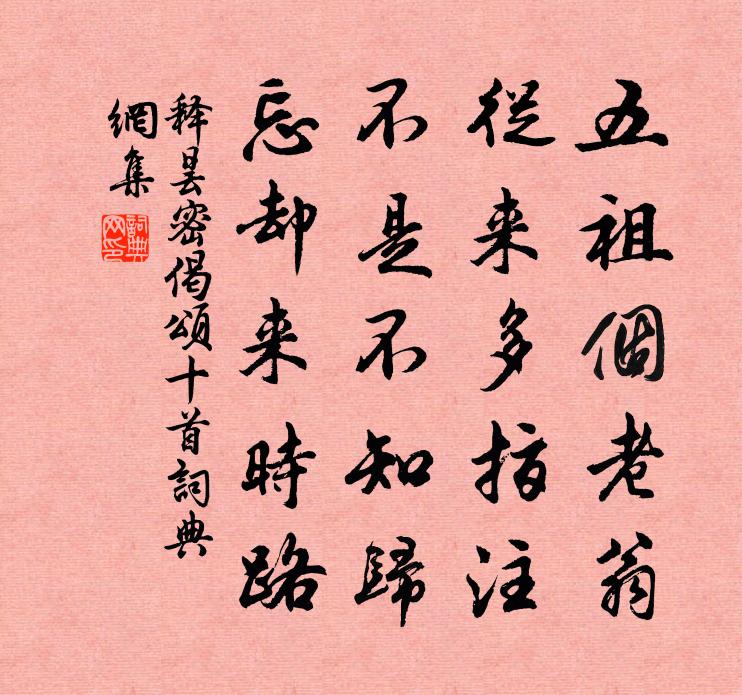 五祖個老翁
從来多指注
不是不知歸
忘却来時路
释曇密偈頌十首詞典
網集
詞典
网印